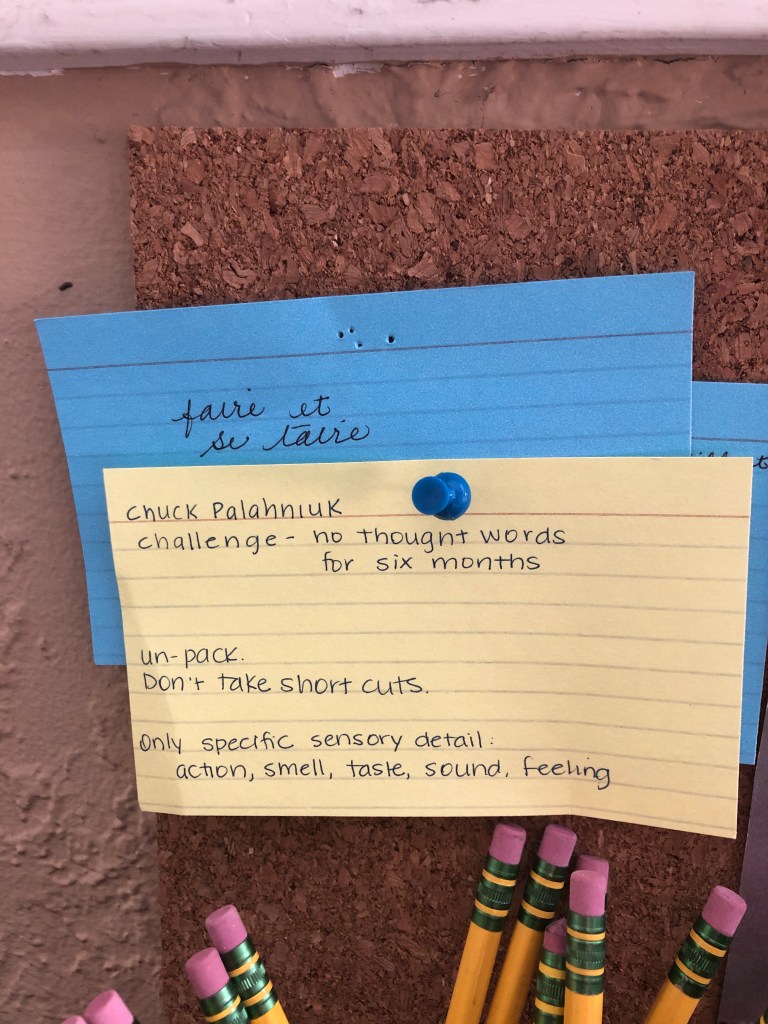 faire et
se taire
Chuck Palahniuk
challenge - no thought words
for six months
un-pack.
Don't take short cuts.
Only specific sensory detail:
action, smell, taste, sound, feeling